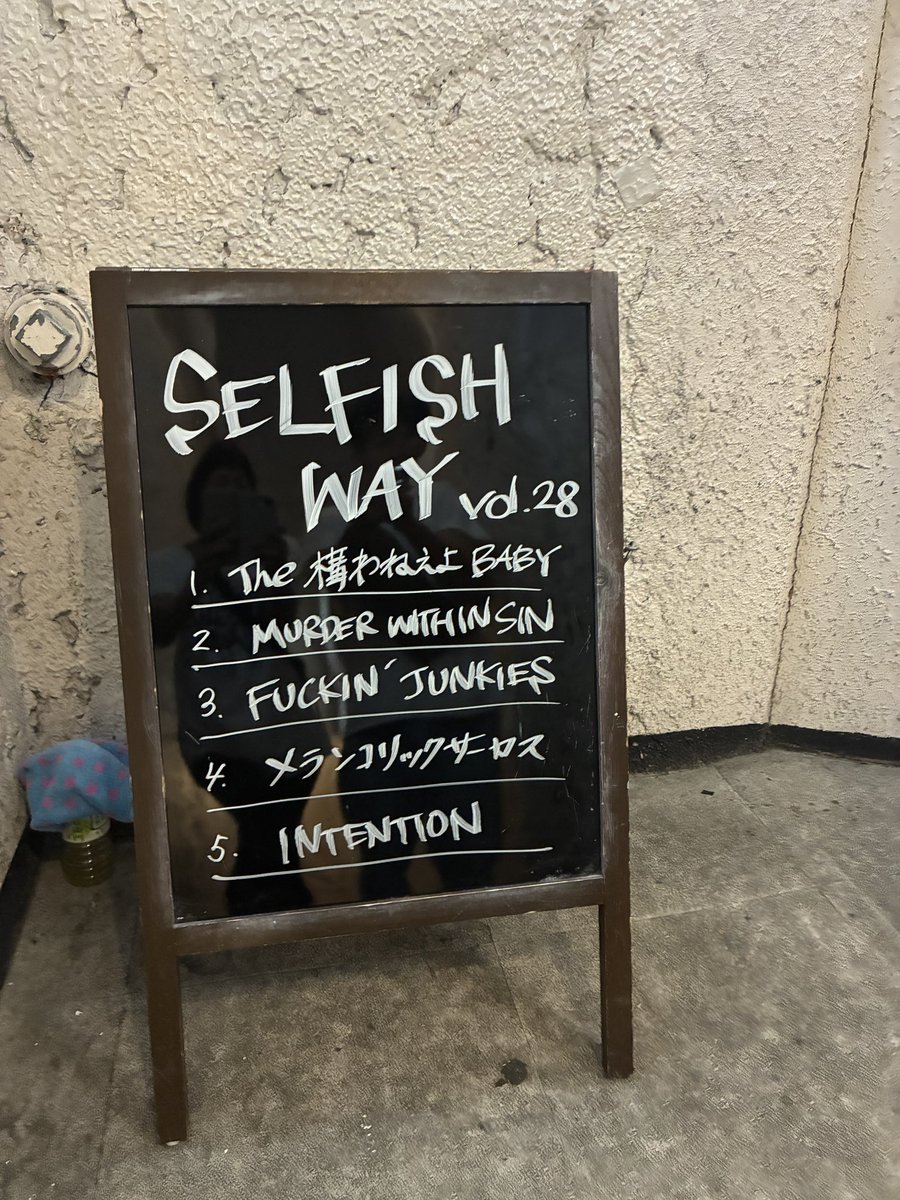 SELFISH
WAY vol.28
1. The 構わねぇよ BABY
2. MURDER WITHIN SIN
3. FUCKIN' JUNKIES
4. メランコリックサーカス
5. INTENTION